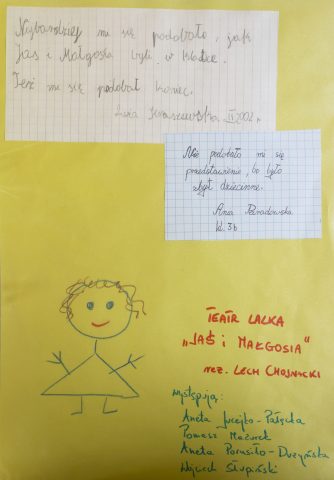 Najbardziej mi się podobało, jak
Jaś i Małgosia byli w klatce.
Też mi się podobał koniec.
Nie podobało mi się
przedstawienie, bo było
zbyt dziecinne.
Ania
kl. 3b
TEATR LALKA
„JAŚ i MAŁGOSIA"
reż. LECH CHOJNACKI
występują:
Aneta Jucejko-Pałęcka
Tomasz Mazurek
Aneta Porusiło-Dużyńska
Wojciech Słupiński